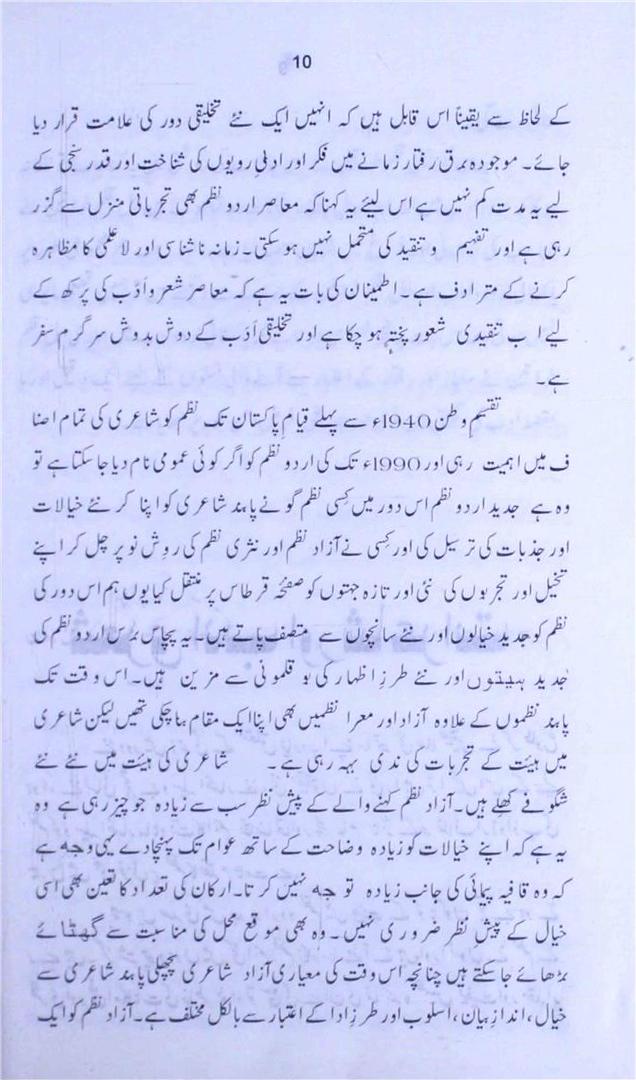 10
کے لحاظ سے یقیناً اس قابل ہیں کہ انہیں ایک نئے تخلیقی دور کی علامت قرار دیا
جائے۔ موجودہ برق رفتار زمانے میں فکر اور ادبی رویوں کی شناخت اور قدر سنجی کے
لیے یہ مدت کم نہیں ہے اس لیئے یہ کہنا کہ معاصر اردو نظم بھی تجرباتی منزل سے گزر
رہی ہے اور تفہیم و تنقید کی متحمل نہیں ہو سکتی۔ زمانہ ناشناسی اور لاعلمی کا مظاہرہ
کرنے کے مترادف ہے۔ اطمینان کی بات یہ ہے کہ معاصر شعر و اَدَب کی پرکھ کے
لیے اب تنقیدی شعور پختہ ہو چکا ہے اور تخلیقی اَدَب کے دوش بدوش سرگرم سفر
ہے۔
تقسیم وطن 1940ء سے پہلے قیامِ پاکستان تک نظم کو شاعری کی تمام اصنا
ف میں اہمیت رہی اور 1990ء تک کی اردو نظم کو اگر کوئی عمومی نام دیا جا سکتا ہے تو
وہ ہے جدید اردو نظم اس دور میں کِسی نظم گو نے پابند شاعری کو اپنا کر نئے خیالات
اور جذبات کی ترسیل کی اور کسی نے آزاد نظم اور نثری نظم کی روِش نو پر چل کر اپنے
تخیل اور تجربوں کی نئی اور تازہ جہتوں کو صفحۂ قرطاس پر منتقل کیا یوں ہم اس دور کی
نظم کو جدید خیالوں اور نئے سانچوں سے متصف پاتے ہیں۔ یہ پچاس برس اردو نظم کی
جدید ہیتوں اور نئے طرزِ اظہار کی بو قلمونی سے مزین ہیں۔ اس وقت تک
پابند نظموں کے علاوہ آزاد اور معرا نظمیں بھی اپنا ایک مقام بنا چکی تھیں لیکن شاعری
میں ہیئت کے تجربات کی ندی بہہ رہی ہے۔ شاعری کی ہیئت میں نئے نئے
شگوفے کھلے ہیں۔ آزاد نظم کہنے والے کے پیش نظر سب سے زیادہ جو چیز رہی ہے وہ
یہ ہے کہ اپنے خیالات کو زیادہ وضاحت کے ساتھ عوام تک پہنچا دے یہی وجہ ہے
کہ وہ قافیہ پیمائی کی جانب زیادہ توجہ نہیں کرتا۔ ارکان کی تعداد کا تعین بھی اسی
خیال کے پیشِ نظر ضروری نہیں۔ وہ بھی موقع محل کی مناسبت سے گھٹائے
بڑھائے جا سکتے ہیں چنانچہ اس وقت کی معیاری آزاد شاعری پچھلی پابند شاعری سے
خیال، اندازِ بیان، اسلوب اور طرزِ ادا کے اعتبار سے بالکل مختلف ہے۔ آزاد نظم کو ایک